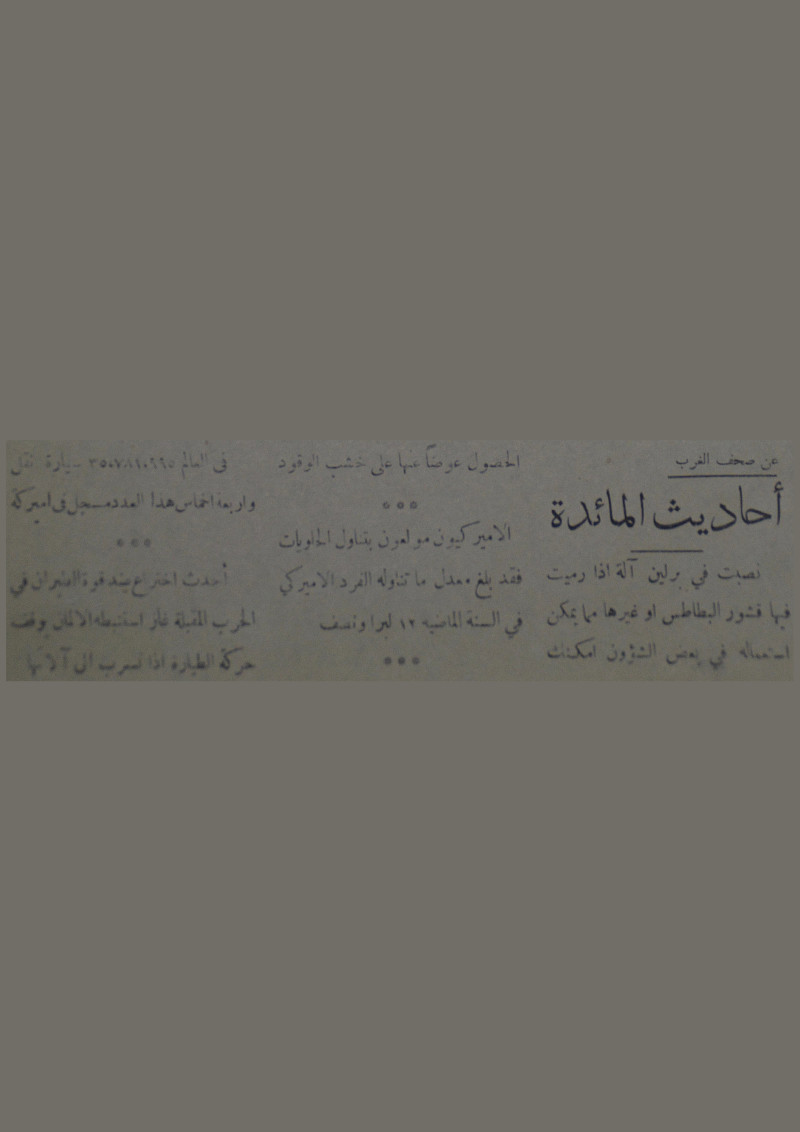 عن صحف الغرب
أحاديث المائدة
نصبت في برلين آلة اذا رميت
فيها قشور البطاطس او غيرها مما يمكن
استعماله في بعض الشؤون امكنك
الحصول عوضاً عنها على خشب الوقود
الاميركيون مولعون بتناول الحلويات
فقد بلغ معدل ما تناوله الفرد الاميركي
في السنة الماضيه ١٢ لبرا ونصف
في العالم سيارة نقل
واربعة اخماس هذا العدد مسجل في اميركة
أحدث اختراع ضد قوة الطيران في
الحرب المقبلة غاز استنبطه الالمان يوقف
حركة الطيارة اذا تسرب الى آلاتها